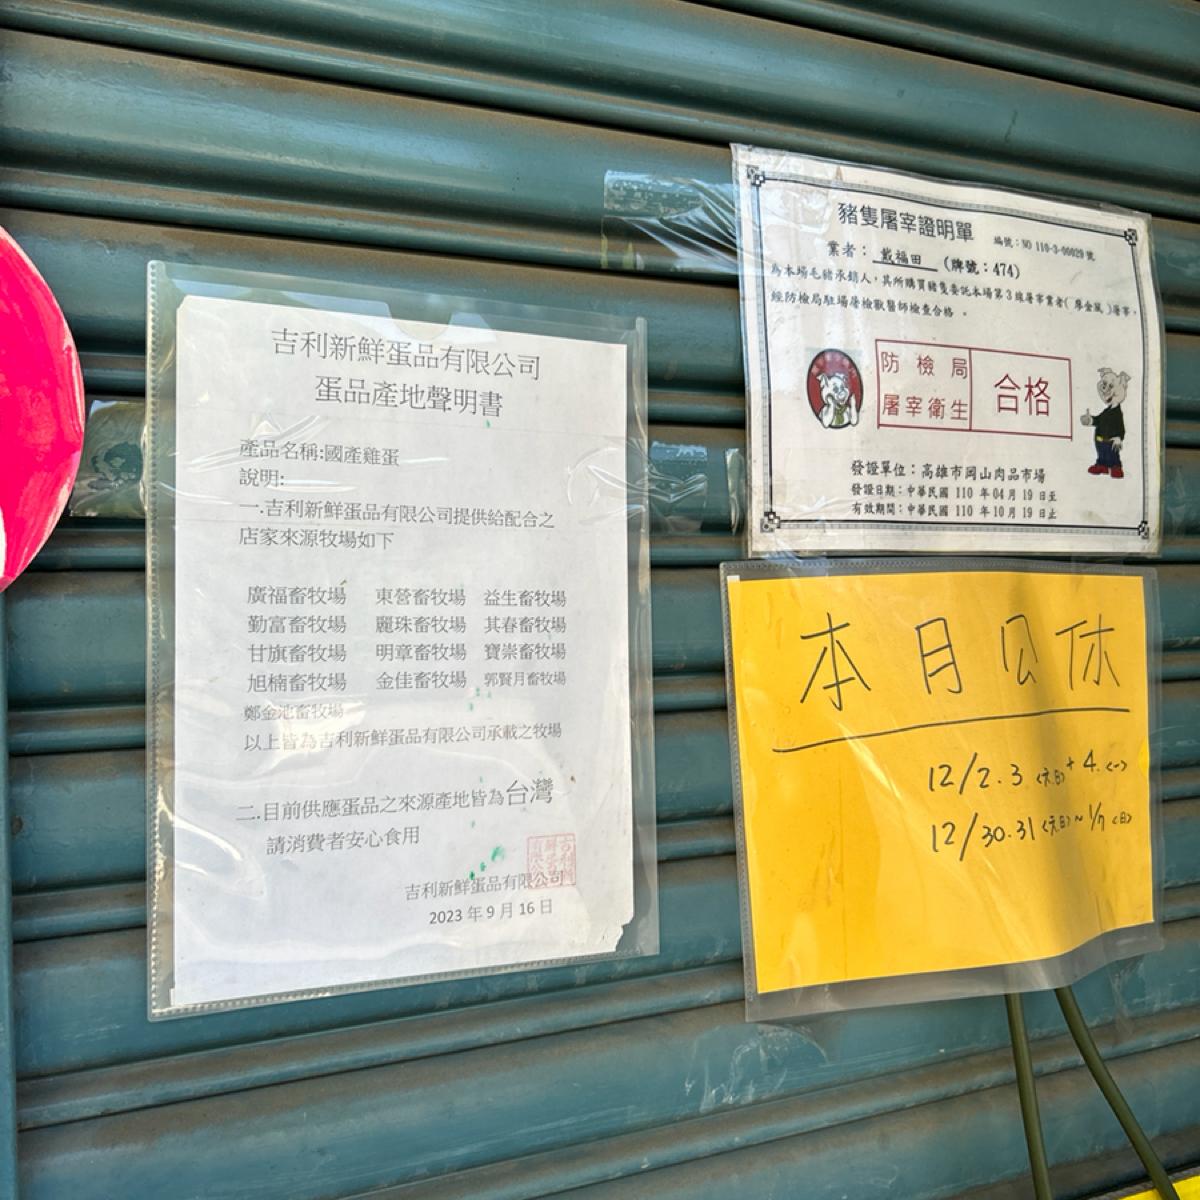 吉利新鮮蛋品有限公司
蛋品產地聲明書
產品名稱:國產雞蛋
說明:
一.吉利新鮮蛋品有限公司提供給配合之
店家來源牧場如下
廣福畜牧場 東營畜牧場 益生畜牧場
勤富畜牧場 麗珠畜牧場 其春畜牧場
甘旗畜牧場 明章畜牧場 寶崇畜牧場
旭楠畜牧場 金佳畜牧場 郭賢月畜牧場
鄭金池畜牧場
以上皆為吉利新鮮蛋品有限公司承載之牧場
二.目前供應蛋品之來源產地皆為台灣
請消費者安心食用
吉利新鮮蛋品有限公司
2023 年 9 月 16 日
豬隻屠宰證明單
編號:NO 110-3-00029 號
業者: 戴福田 (牌號:474)
為本場毛豬承銷人,其所購買豬隻委託本場第3線屠宰業者(廖金風)屠宰,
經防檢局駐場屠檢獸醫師檢查合格。
防檢局
屠宰衛生
合格
發證單位:高雄市岡山肉品市場
發證日期:中華民國 110 年 04 月 19 日至
有效期間:中華民國 110 年 10 月 19 日止
本月公休
12/2.3 (六.日) + 4.(一)
12/30.31 (六日) ~ 1/7 (日)